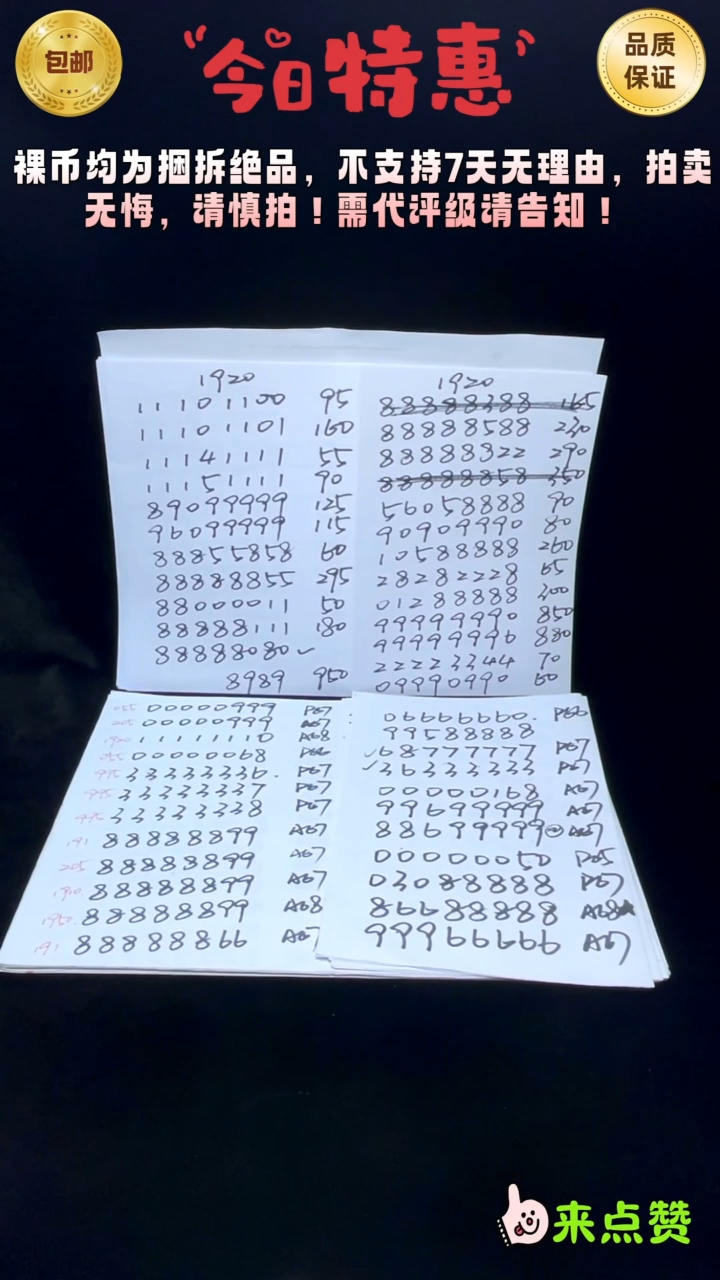 包邮
"今日特惠"
品质
保证
裸币均为捆拆绝品，不支持7天无理由，拍卖
无悔，请慎拍！需代评级请告知！
1920
11101100 95
11101101 160
11141111 55
11151111 90
89099999 125
96099999 115
88855858 60
88888855 295
88000011 50
88888111 180
88888080 ✓
8989 950
1920
88888388 165
88888588 230
88888322 290
88888858 350
56058888 90
90909990 80
10588888 260
28282228 65
01288888 300
99999990 850
99999996 880
22223344 70
09990990 60
00000999 P67
205 00000999 A67
11111110 A68
00000068
995 33333336. P67
995 33333337 P67
995 33333338 P67
191 88888899 A67
205 88888899 A67
1910 88888899 A67
1950. 88888899 A68
191 88888866 A67
06666660. P66
99588888
✓68777777 P67
✓36333333 P67
00000168 A67
99699999 A67
88699999 A67
00000050 P65
03088888 P67
86688888 A68
99966666 A67
来点赞